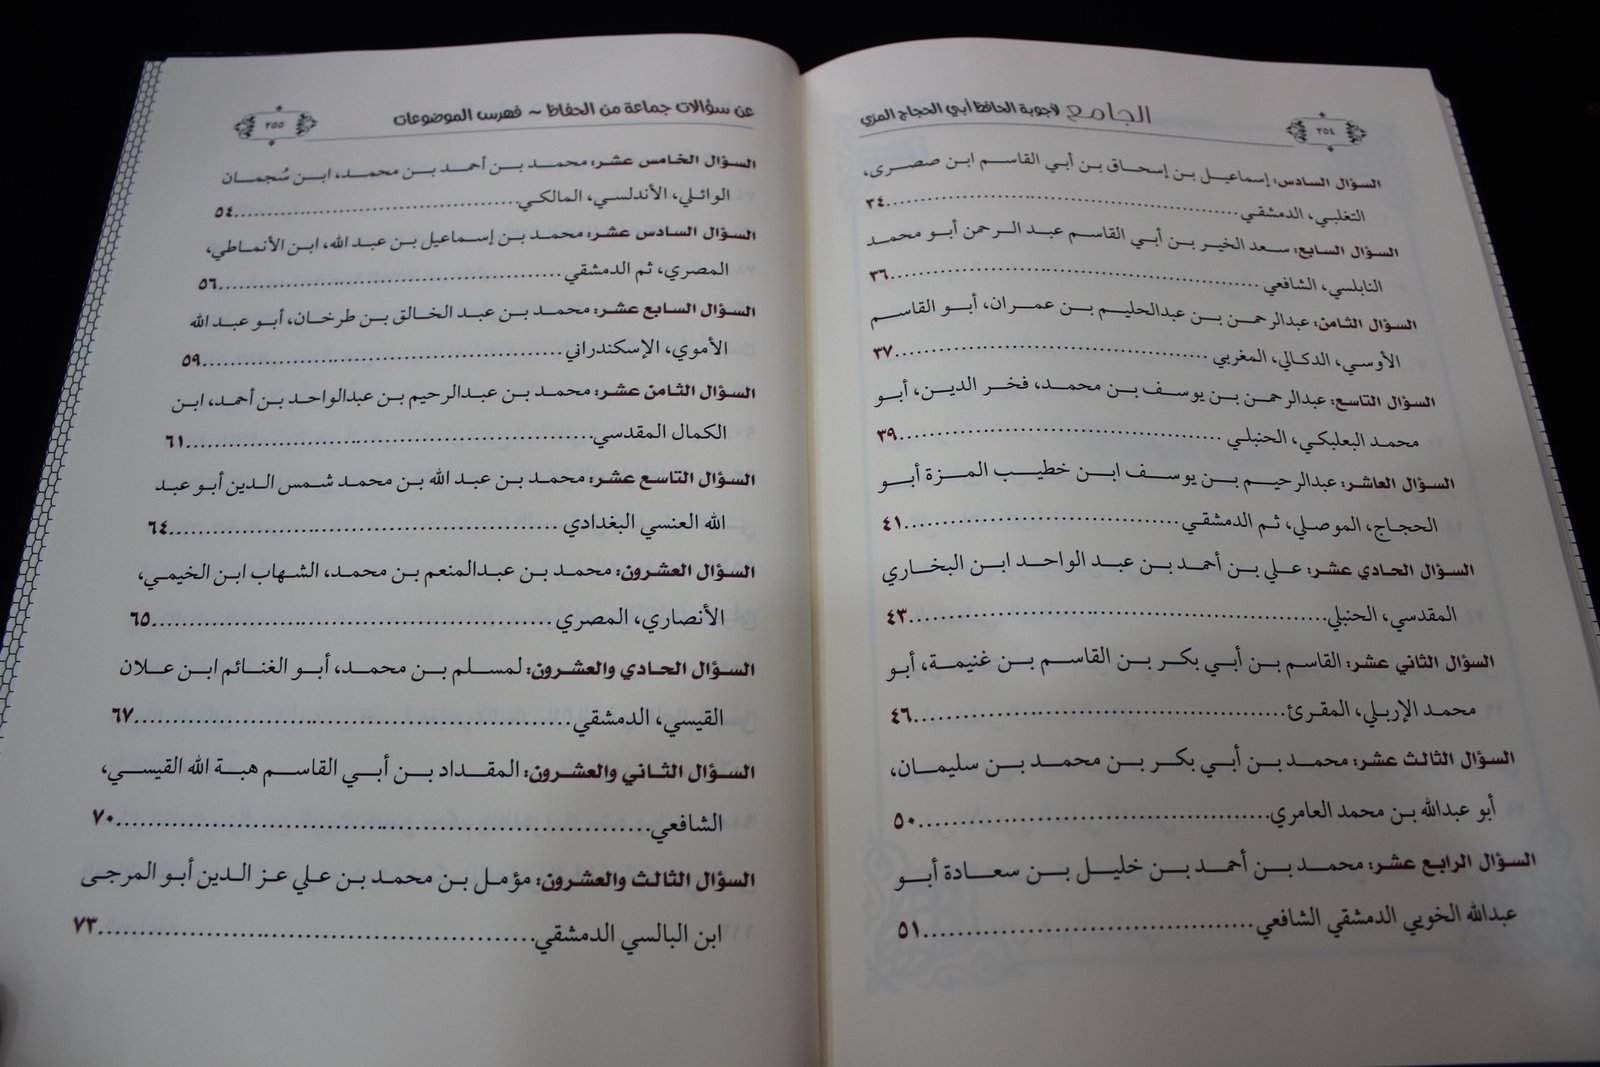 الجامع لأجوبة الحافظ أبي الحجاج المزي
٢٥٤
السؤال السادس: إسماعيل بن إسحاق بن أبي القاسم ابن صصرى،
التغلبي، الدمشقي ................ ٣٤
السؤال السابع: سعد الخير بن أبي القاسم عبد الرحمن أبو محمد
النابلسي، الشافعي ................ ٣٦
السؤال الثامن: عبدالرحمن بن عبدالحليم بن عمران، أبو القاسم
الأوسي، الدكالي، المغربي ................ ٣٧
السؤال التاسع: عبدالرحمن بن يوسف بن محمد، فخر الدين، أبو
محمد البعلبكي، الحنبلي ................ ٣٩
السؤال العاشر: عبدالرحيم بن يوسف ابن خطيب المزة أبو
الحجاج، الموصلي، ثم الدمشقي ................ ٤١
السؤال الحادي عشر: علي بن أحمد بن عبد الواحد ابن البخاري
المقدسي، الحنبلي ................ ٤٣
السؤال الثاني عشر: القاسم بن أبي بكر بن القاسم بن غنيمة، أبو
محمد الإربلي، المقرئ ................ ٤٦
السؤال الثالث عشر: محمد بن أبي بكر بن محمد بن سليمان،
أبو عبدالله بن محمد العامري ................ ٥٠
السؤال الرابع عشر: محمد بن أحمد بن خليل بن سعادة أبو
عبدالله الخويي الدمشقي الشافعي ................ ٥١
عن سؤالات جماعة من الحفاظ ~ فهرس الموضوعات
٢٥٥
السؤال الخامس عشر: محمد بن أحمد بن محمد، ابن سُجمان
الوائلي، الأندلسي، المالكي ................ ٥٤
السؤال السادس عشر: محمد بن إسماعيل بن عبد الله، ابن الأنماطي،
المصري، ثم الدمشقي ................ ٥٦
السؤال السابع عشر: محمد بن عبد الخالق بن طرخان، أبو عبد الله
الأموي، الإسكندراني ................ ٥٩
السؤال الثامن عشر: محمد بن عبدالرحيم بن عبدالواحد بن أحمد، ابن
الكمال المقدسي ................ ٦١
السؤال التاسع عشر: محمد بن عبد الله بن محمد شمس الدين أبو عبد
الله العنسي البغدادي ................ ٦٤
السؤال العشرون: محمد بن عبدالمنعم بن محمد، الشهاب ابن الخيمي،
الأنصاري، المصري ................ ٦٥
السؤال الحادي والعشرون: لمسلم بن محمد، أبو الغنائم ابن علان
القيسي، الدمشقي ................ ٦٧
السؤال الثاني والعشرون: المقداد بن أبي القاسم هبة الله القيسي،
الشافعي ................ ٧٠
السؤال الثالث والعشرون: مؤمل بن محمد بن علي عز الدين أبو المرجى
ابن البالسي الدمشقي ................ ٧٣